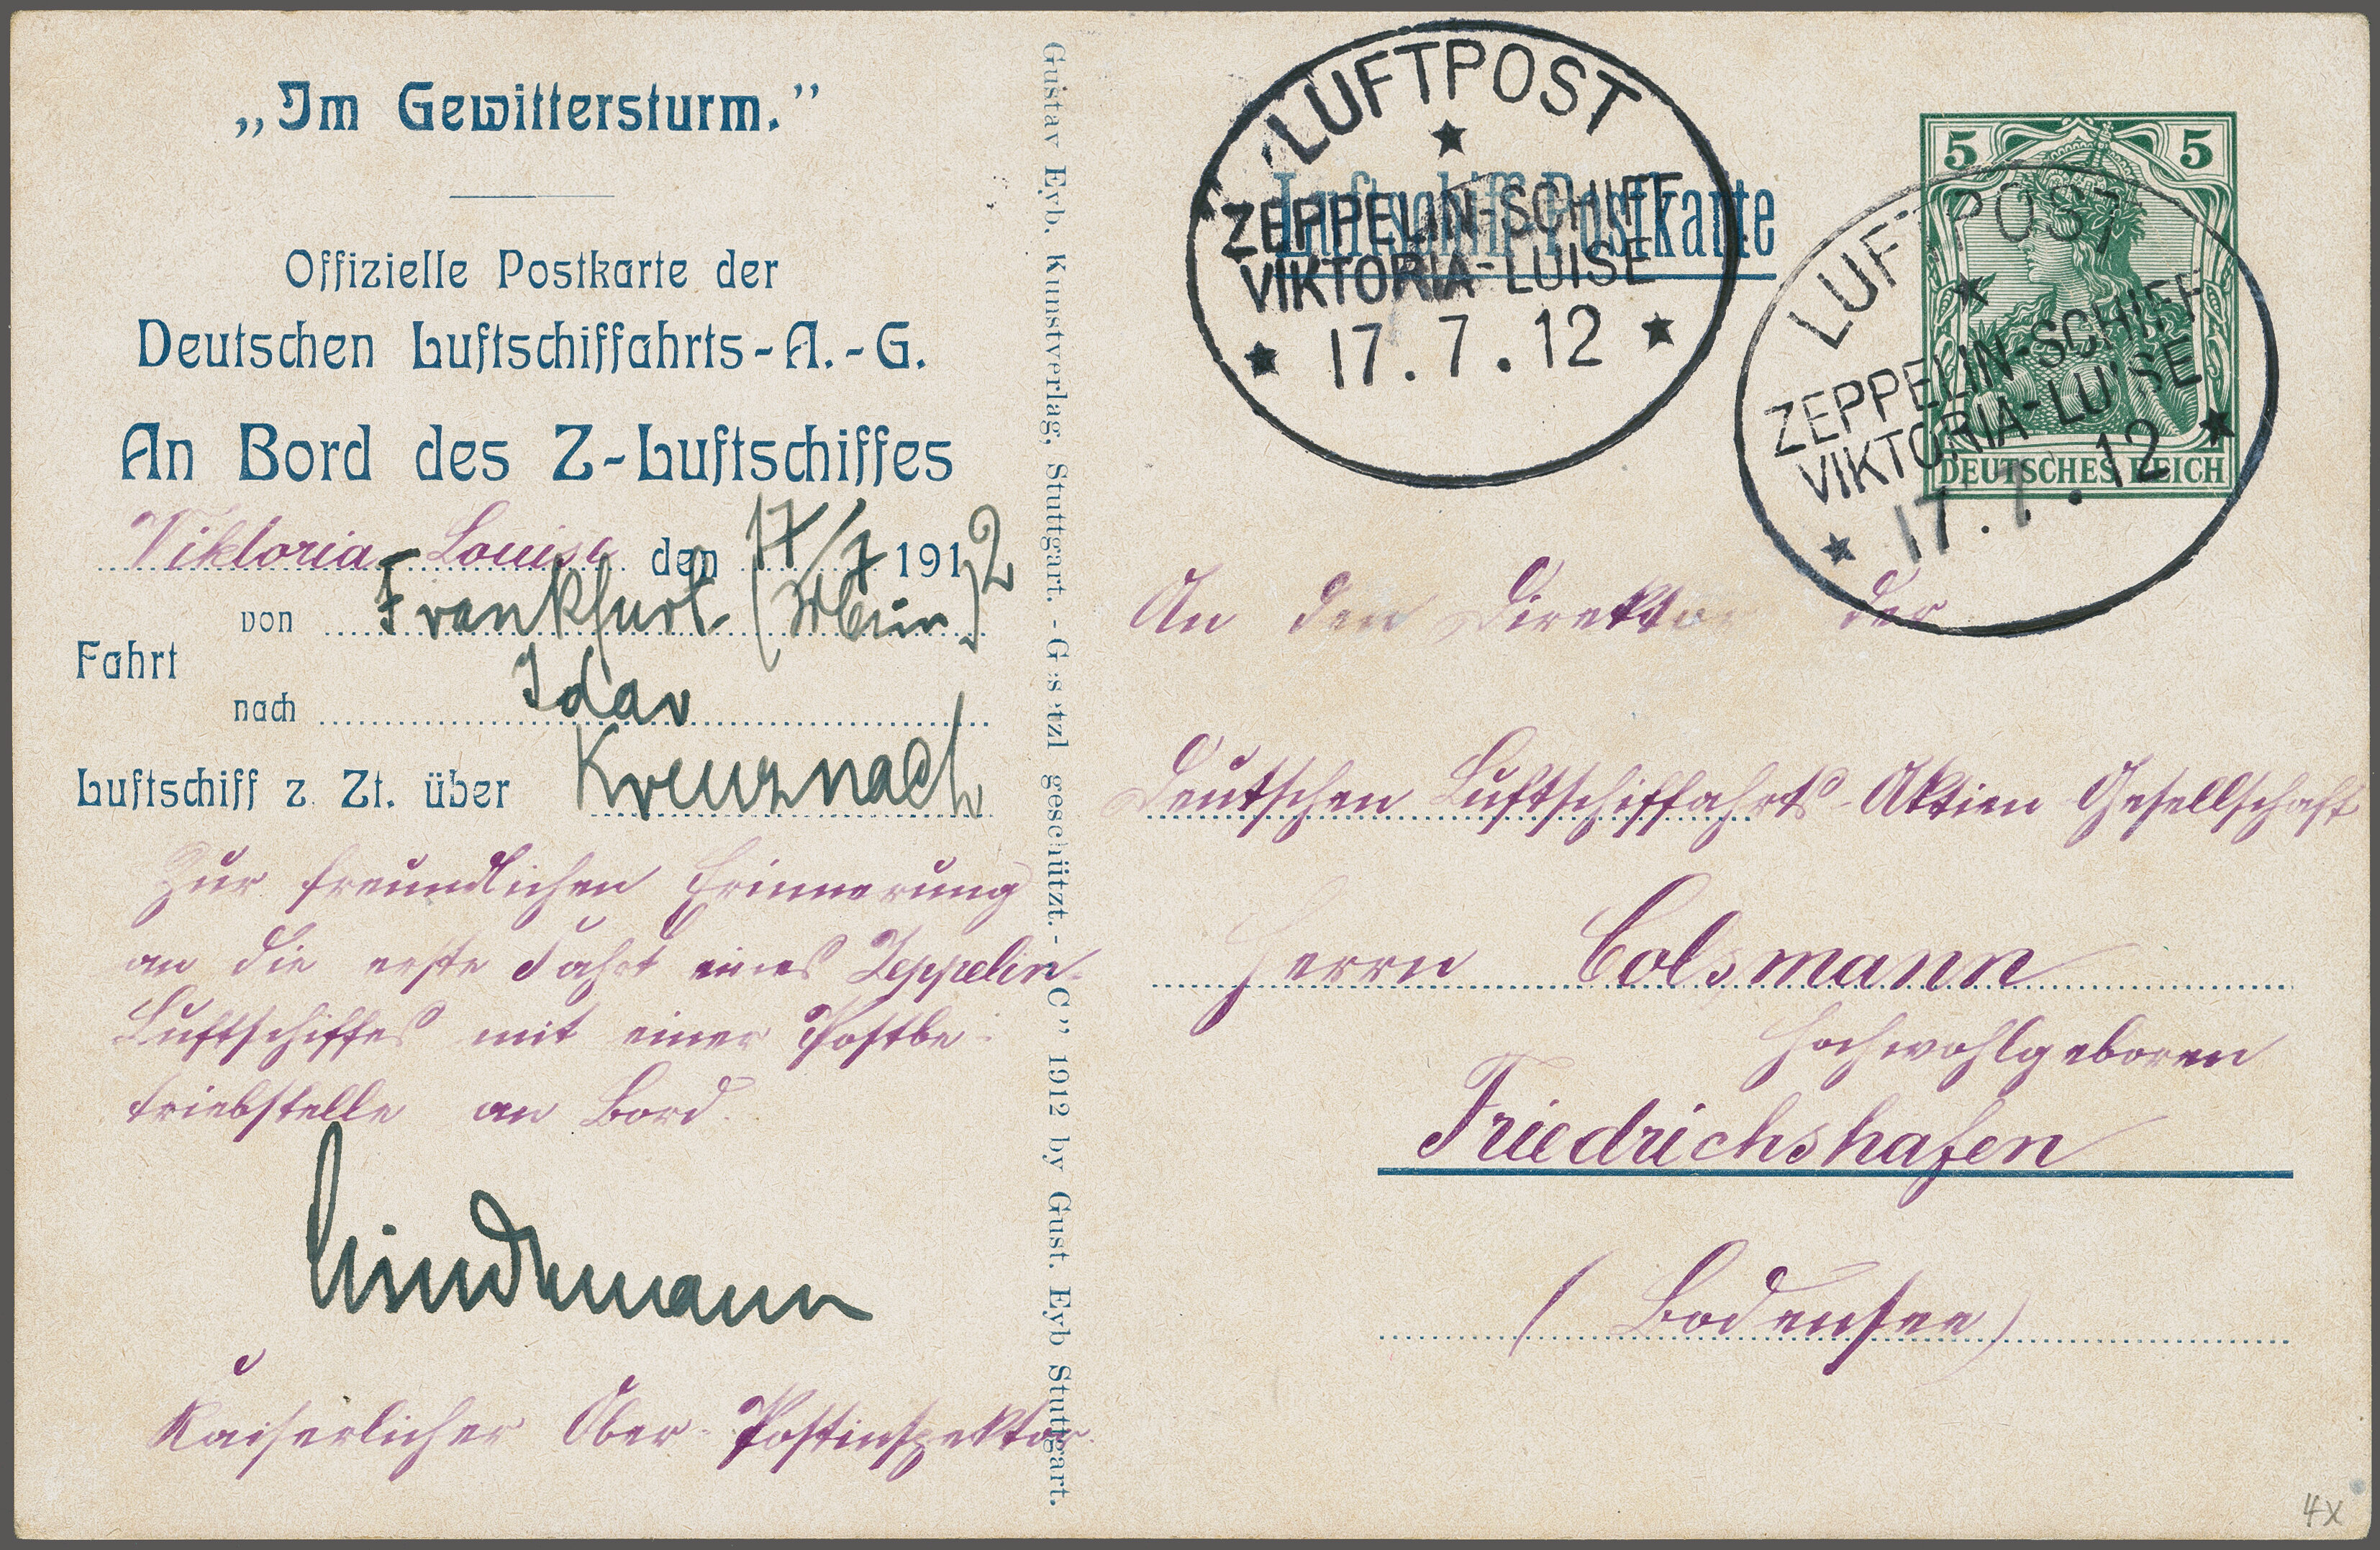 „Im Gewittersturm.”
Offizielle Postkarte der
Deutschen Luftschiffahrts-A.-G.
An Bord des Z-Luftschiffes
Viktoria Louise den 17/7 1912
von Frankfurt (Main)
Fahrt
nach Idar
Luftschiff z. Zt. über Kreuznach
Zur freundlichen Erinnerung
an die erste Fahrt eines Zeppelin-
Luftschiffes mit einer Postbe-
triebstelle an Bord.
Lindemann
Kaiserlicher Ober-Postinspektor
Gustav Eyb, Kunstverlag, Stuttgart. - Gesetzl geschützt. - „C” 1912 by Gust. Eyb Stuttgart.
LUFTPOST
ZEPPELIN-SCHIFF
VIKTORIA-LUISE
17.7.12
Luftschiff-Postkarte
5 5
DEUTSCHES REICH
LUFTPOST
ZEPPELIN-SCHIFF
VIKTORIA-LUISE
17.7.12
An den Direktor der
Deutschen Luftschiffahrts-Aktien Gesellschaft
Herrn Colsmann
Hochwohlgeboren
Friedrichshafen
(Bodensee)
4x